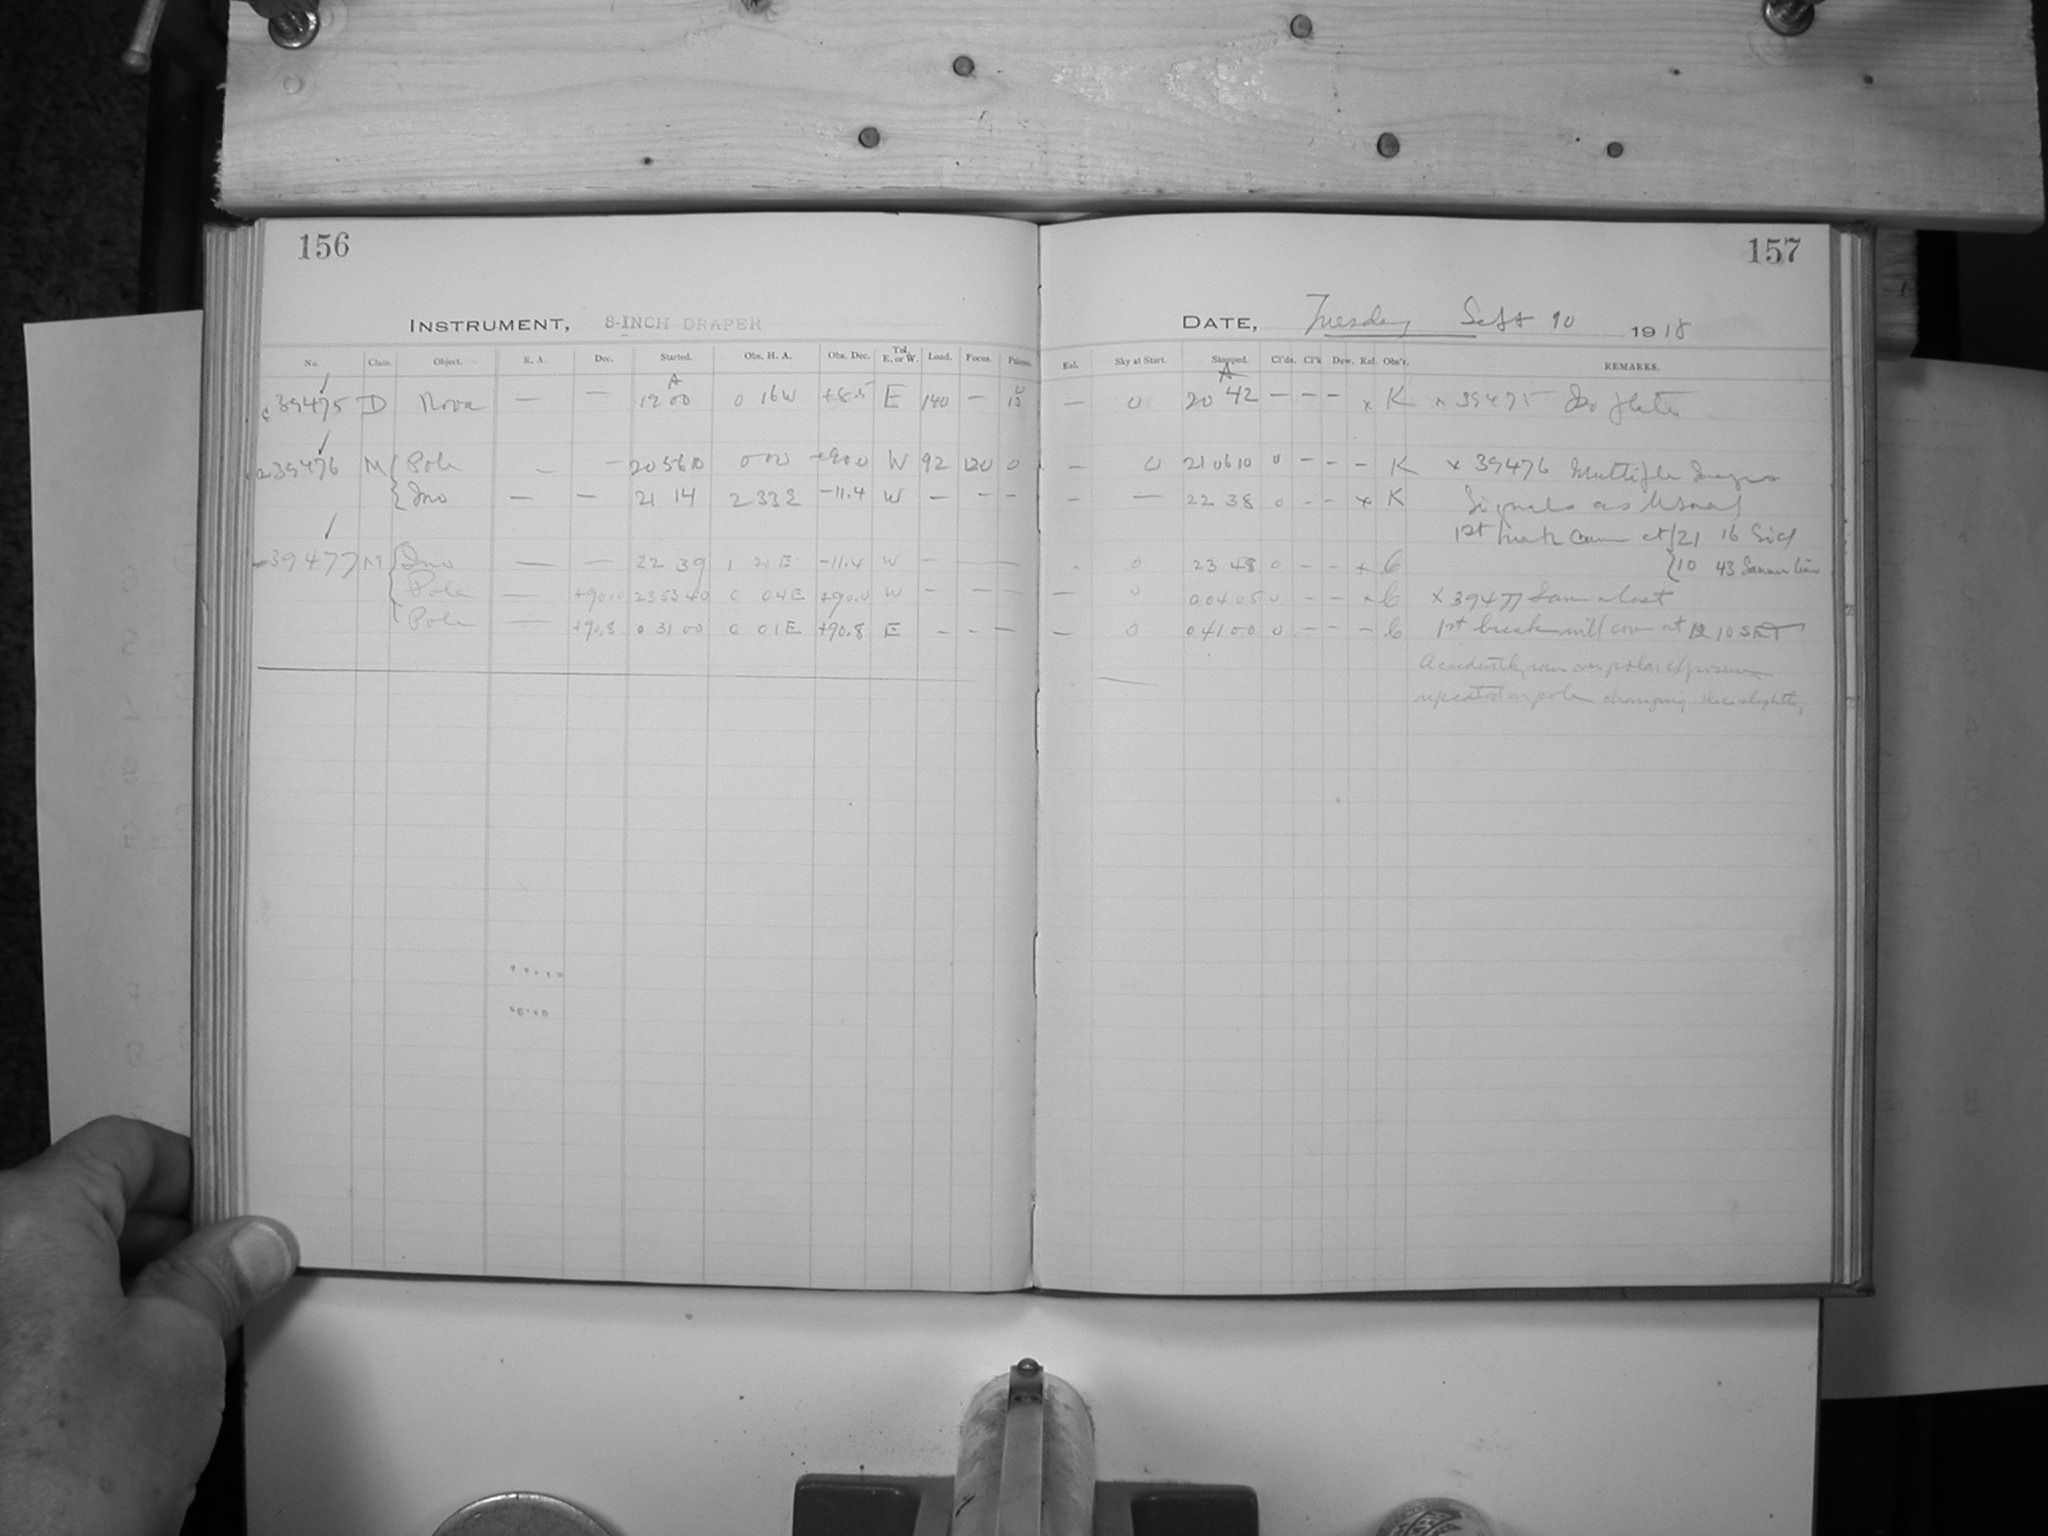 156
INSTRUMENT, 8-INCH DRAPER
No. Class. Object. R. A. Dec. Started. Obs. H. A. Obs. Dec. Tel. E. or W. Load. Focus. Prisms.
A
39475 D Nova — — 19 00 0 16W +8.5 E 140 — 13
39476 M Pole — — 20 56 10 0 00 +90.0 W 92 120 0
Ino — — 21 14 2 33 E -11.4 W — — —
39477 M Ino — — 22 39 1 20 E -11.4 W — — —
Pole — +90.0 23 53 40 0 04E +90.0 W — — —
Pole — +90.8 0 31 00 0 01E +90.8 E — — —
157
DATE, Tuesday Sept 10 1918
Sky at Start. Stopped. Cl'ds. Cl'k Dew. Ref. Obs'r. REMARKS.
A
— 0 20 42 — — — x K x 39475
— 0 21 06 10 0 — — — K x 39476 Multiple
— — 22 38 0 — — x K Signals as Usual
1st break came at 21 16 Sid
0 23 48 0 — — x C 10 43 Summer time
— 0 0 04 05 0 — — x C x 39477 Same as last
— 0 0 41 00 0 — — — C 1st break will come at 12 10 S
Accidently ran over polar exposure
repeated on pole changing dec slightly